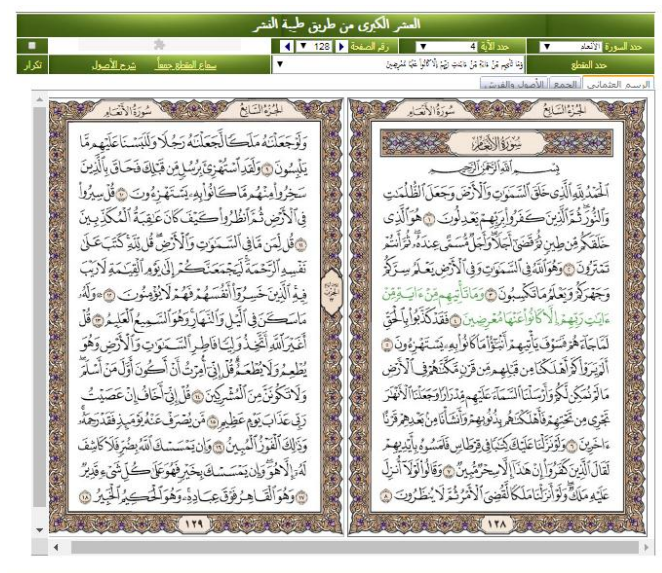 العشر الكبرى من طريق طيبة النشر
حدد السورة الأنعام حدد الآية 4 رقم الصفحة 128
حدد المقطع وَمَا تَأْتِيهِم مِّنْ ءَايَةٍ مِّنْ ءَايَٰتِ رَبِّهِمْ إِلَّا كَانُوا۟ عَنْهَا مُعْرِضِينَ سماع المقطع جمعاً شرح الأصول تكرار
الرسم العثماني الجمع الأصول والفرش
سُورَةُ الأَنْعَام الجُزْءُ السَّابِع
سُورَةُ الأَنْعَام
بِسْمِ ٱللَّهِ ٱلرَّحْمَٰنِ ٱلرَّحِيمِ
ٱلْحَمْدُ لِلَّهِ ٱلَّذِى خَلَقَ ٱلسَّمَٰوَٰتِ وَٱلْأَرْضَ وَجَعَلَ ٱلظُّلُمَٰتِ
وَٱلنُّورَ ثُمَّ ٱلَّذِينَ كَفَرُوا۟ بِرَبِّهِمْ يَعْدِلُونَ ١ هُوَ ٱلَّذِى
خَلَقَكُم مِّن طِينٍ ثُمَّ قَضَىٰٓ أَجَلًا وَأَجَلٌ مُّسَمًّى عِندَهُۥ ثُمَّ أَنتُمْ
تَمْتَرُونَ ٢ وَهُوَ ٱللَّهُ فِى ٱلسَّمَٰوَٰتِ وَفِى ٱلْأَرْضِ يَعْلَمُ سِرَّكُمْ
وَجَهْرَكُمْ وَيَعْلَمُ مَا تَكْسِبُونَ ٣ وَمَا تَأْتِيهِم مِّنْ ءَايَةٍ مِّنْ
ءَايَٰتِ رَبِّهِمْ إِلَّا كَانُوا۟ عَنْهَا مُعْرِضِينَ ٤ فَقَدْ كَذَّبُوا۟ بِٱلْحَقِّ
لَمَّا جَآءَهُمْ فَسَوْفَ يَأْتِيهِمْ أَنۢبَٰٓؤُا۟ مَا كَانُوا۟ بِهِۦ يَسْتَهْزِءُونَ ٥
أَلَمْ يَرَوْا۟ كَمْ أَهْلَكْنَا مِن قَبْلِهِم مِّن قَرْنٍ مَّكَّنَّٰهُمْ فِى ٱلْأَرْضِ
مَا لَمْ نُمَكِّن لَّكُمْ وَأَرْسَلْنَا ٱلسَّمَآءَ عَلَيْهِم مِّدْرَارًا وَجَعَلْنَا ٱلْأَنْهَٰرَ
تَجْرِى مِن تَحْتِهِمْ فَأَهْلَكْنَٰهُم بِذُنُوبِهِمْ وَأَنشَأْنَا مِنۢ بَعْدِهِمْ قَرْنًا
ءَاخَرِينَ ٦ وَلَوْ نَزَّلْنَا عَلَيْكَ كِتَٰبًا فِى قِرْطَاسٍ فَلَمَسُوهُ بِأَيْدِيهِمْ
لَقَالَ ٱلَّذِينَ كَفَرُوٓا۟ إِنْ هَٰذَآ إِلَّا سِحْرٌ مُّبِينٌ ٧ وَقَالُوا۟ لَوْلَآ أُنزِلَ
عَلَيْهِ مَلَكٌ وَلَوْ أَنزَلْنَا مَلَكًا لَّقُضِىَ ٱلْأَمْرُ ثُمَّ لَا يُنظَرُونَ ٨
١٢٨
سُورَةُ الأَنْعَام الجُزْءُ السَّابِع
وَلَوْ جَعَلْنَٰهُ مَلَكًا لَّجَعَلْنَٰهُ رَجُلًا وَلَلَبَسْنَا عَلَيْهِم مَّا
يَلْبِسُونَ ٩ وَلَقَدِ ٱسْتُهْزِئَ بِرُسُلٍ مِّن قَبْلِكَ فَحَاقَ بِٱلَّذِينَ
سَخِرُوا۟ مِنْهُم مَّا كَانُوا۟ بِهِۦ يَسْتَهْزِءُونَ ١٠ قُلْ سِيرُوا۟
فِى ٱلْأَرْضِ ثُمَّ ٱنظُرُوا۟ كَيْفَ كَانَ عَٰقِبَةُ ٱلْمُكَذِّبِينَ
١١ قُل لِّمَن مَّا فِى ٱلسَّمَٰوَٰتِ وَٱلْأَرْضِ قُل لِّلَّهِ كَتَبَ عَلَىٰ
نَفْسِهِ ٱلرَّحْمَةَ لَيَجْمَعَنَّكُمْ إِلَىٰ يَوْمِ ٱلْقِيَٰمَةِ لَا رَيْبَ
فِيهِ ٱلَّذِينَ خَسِرُوٓا۟ أَنفُسَهُمْ فَهُمْ لَا يُؤْمِنُونَ ١٢ وَلَهُۥ
مَا سَكَنَ فِى ٱلَّيْلِ وَٱلنَّهَارِ وَهُوَ ٱلسَّمِيعُ ٱلْعَلِيمُ ١٣ قُلْ
أَغَيْرَ ٱللَّهِ أَتَّخِذُ وَلِيًّا فَاطِرِ ٱلسَّمَٰوَٰتِ وَٱلْأَرْضِ وَهُوَ
يُطْعِمُ وَلَا يُطْعَمُ قُلْ إِنِّىٓ أُمِرْتُ أَنْ أَكُونَ أَوَّلَ مَنْ أَسْلَمَ
وَلَا تَكُونَنَّ مِنَ ٱلْمُشْرِكِينَ ١٤ قُلْ إِنِّىٓ أَخَافُ إِنْ عَصَيْتُ
رَبِّى عَذَابَ يَوْمٍ عَظِيمٍ ١٥ مَّن يُصْرَفْ عَنْهُ يَوْمَئِذٍ فَقَدْ رَحِمَهُۥ
وَذَٰلِكَ ٱلْفَوْزُ ٱلْمُبِينُ ١٦ وَإِن يَمْسَسْكَ ٱللَّهُ بِضُرٍّ فَلَا كَاشِفَ
لَهُۥٓ إِلَّا هُوَ وَإِن يَمْسَسْكَ بِخَيْرٍ فَهُوَ عَلَىٰ كُلِّ شَىْءٍ قَدِيرٌ
١٧ وَهُوَ ٱلْقَاهِرُ فَوْقَ عِبَادِهِۦ وَهُوَ ٱلْحَكِيمُ ٱلْخَبِيرُ ١٨
١٢٩